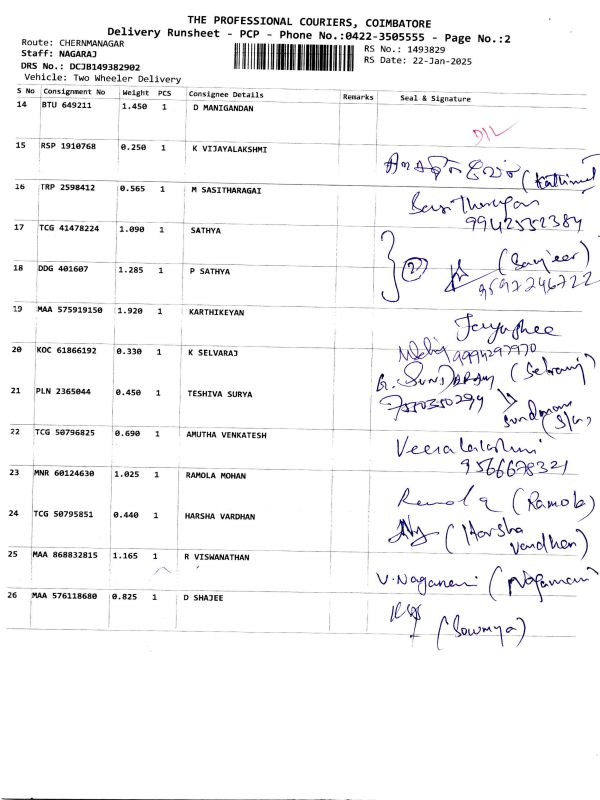 THE PROFESSIONAL COURIERS, COIMBATORE
Delivery Runsheet - PCP - Phone No.:0422-3505555 - Page No.:2
Route: CHERNMANAGAR
RS No.: 1493829
Staff: NAGARAJ
RS Date: 22-Jan-2025
DRS No.: DCJB149382902
Vehicle: Two Wheeler Delivery
S No Consignment No Weight PCS Consignee Details Remarks Seal & Signature
14 BTU 649211 1.450 1 D MANIGANDAN
D/L
15 RSP 1910768 0.250 1 K VIJAYALAKSHMI
16 TRP 2598412 0.565 1 M SASITHARAGAI
9942552384
17 TCG 41478224 1.090 1 SATHYA
(Sanjeer)
18 DDG 401607 1.285 1 P SATHYA
2
9597246722
19 MAA 575919150 1.920 1 KARTHIKEYAN
Jayashee
20 KOC 61866192 0.330 1 K SELVARAJ
9994297970
(Selvaraj)
21 PLN 2365044 0.450 1 TESHIVA SURYA
7550350294
22 TCG 50796825 0.690 1 AMUTHA VENKATESH
Veeralakshmi
9566678321
23 MNR 60124630 1.025 1 RAMOLA MOHAN
(Ramola)
24 TCG 50795851 0.440 1 HARSHA VARDHAN
(Harsha
Vardhan)
25 MAA 868832815 1.165 1 R VISWANATHAN
V.Nagamani (Nagamani)
26 MAA 576118680 0.825 1 D SHAJEE
(Sowmya)